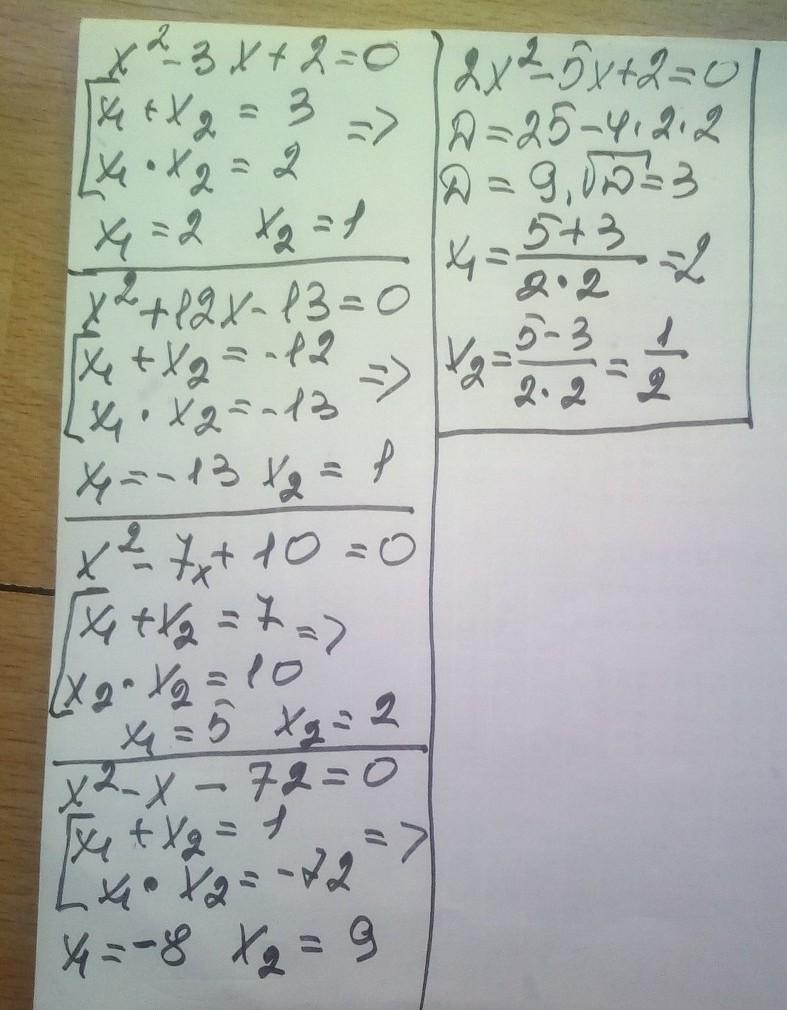 x² - 3x + 2 = 0
x₁ + x₂ = 3
x₁ · x₂ = 2 =>
x₁ = 2 x₂ = 1
x² + 12x - 13 = 0
x₁ + x₂ = -12
x₁ · x₂ = -13 =>
x₁ = -13 x₂ = 1
x² - 7x + 10 = 0
x₁ + x₂ = 7 =>
x₂ · x₂ = 10
x₁ = 5 x₂ = 2
x² - x - 72 = 0
x₁ + x₂ = 1 =>
x₁ · x₂ = -72
x₁ = -8 x₂ = 9
2x² - 5x + 2 = 0
D = 25 - 4 · 2 · 2
D = 9, √D = 3
x₁ = (5 + 3)/(2 · 2) = 2
x₂ = (5 - 3)/(2 · 2) = 1/2